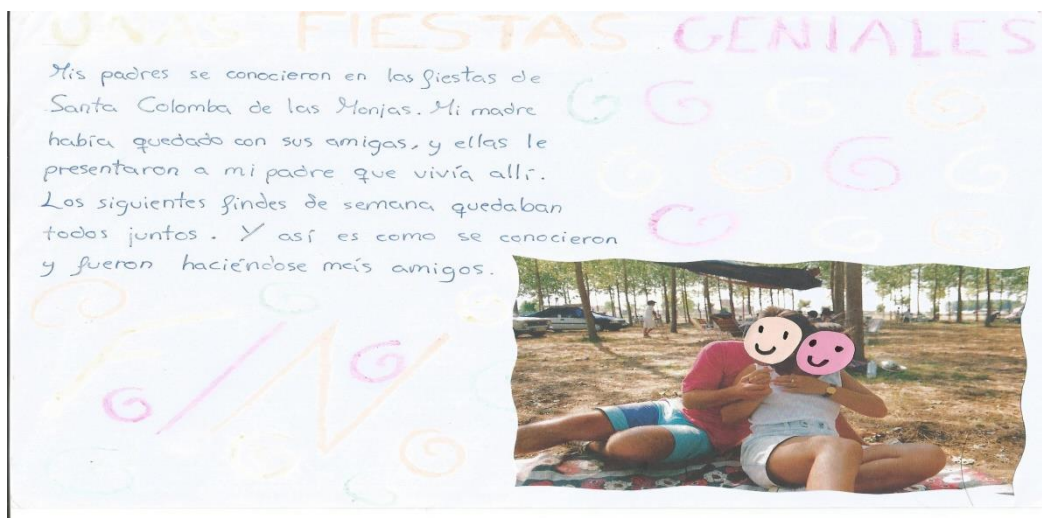 UNAS FIESTAS GENIALES
Mis padres se conocieron en las fiestas de
Santa Colomba de las Monjas. Mi madre
había quedado con sus amigas, y ellas le
presentaron a mi padre que vivía allí.
Los siguientes findes de semana quedaban
todos juntos. Y así es como se conocieron
y fueron haciéndose más amigos.